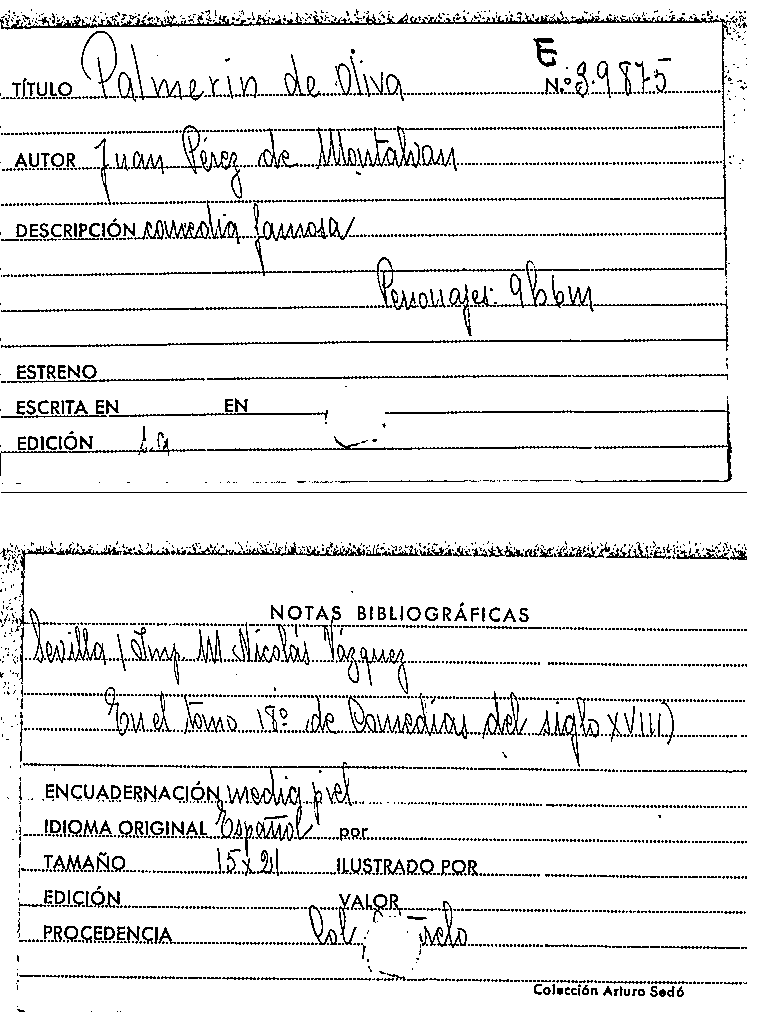 E
TÍTULO Palmerin de Oliva N.º 39875
AUTOR Juan Pérez de Montalvan
DESCRIPCIÓN comedia famosa
Personajes: 9h 6m
ESTRENO
ESCRITA EN EN
EDICIÓN 1.a
NOTAS BIBLIOGRÁFICAS
Sevilla / Imp M Nicolás Vázquez
En el tomo 18º de Comedias del siglo XVIII)
ENCUADERNACIÓN media piel
IDIOMA ORIGINAL Español por
TAMAÑO 15x21 ILUSTRADO POR
EDICIÓN VALOR
PROCEDENCIA Col
Colección Arturo Sedó